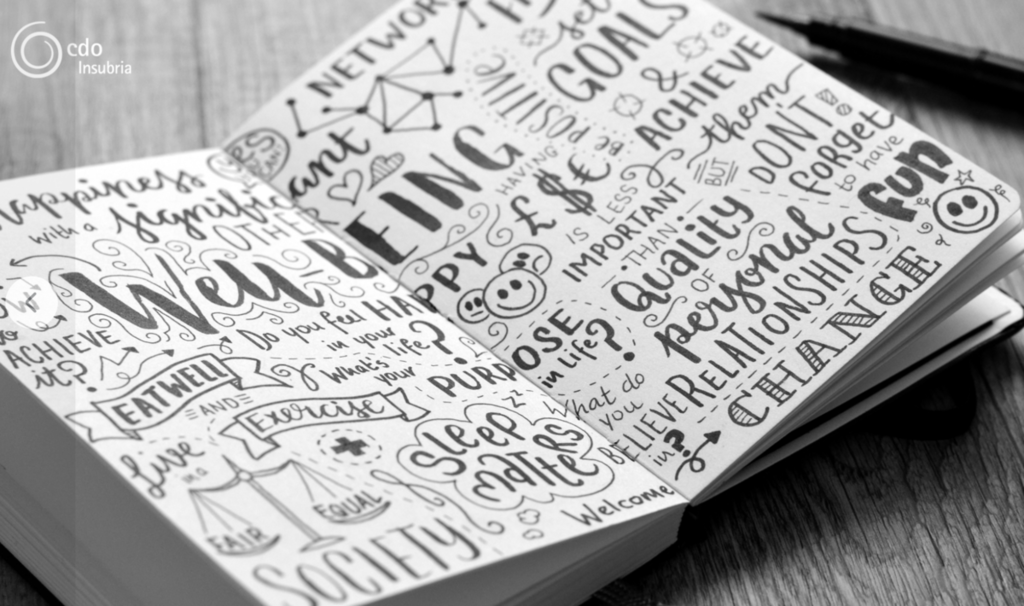 cdo
Insubria
Happiness
with a significant
OTHER
Well-BEING
Do you feel HAPPY
in your
life?
ACHIEVE
it?
EATWELL
AND
Exercise
What's
your PURPOSE
in life?
Live
in a
FAIR
EQUAL
SOCIETY
Sleep
matters
z
Welcome
NETWORK
set
GOALS
&
ACHIEVE
them
BE POSITIVE
BUT
DON'T
forget
to have
fun
HAVING
£ $ €
IS
LESS
IMPORTANT
THAN
Quality
OF
personal
RELATIONSHIPS
What do
you
BELIEVE
in?
CHANGE